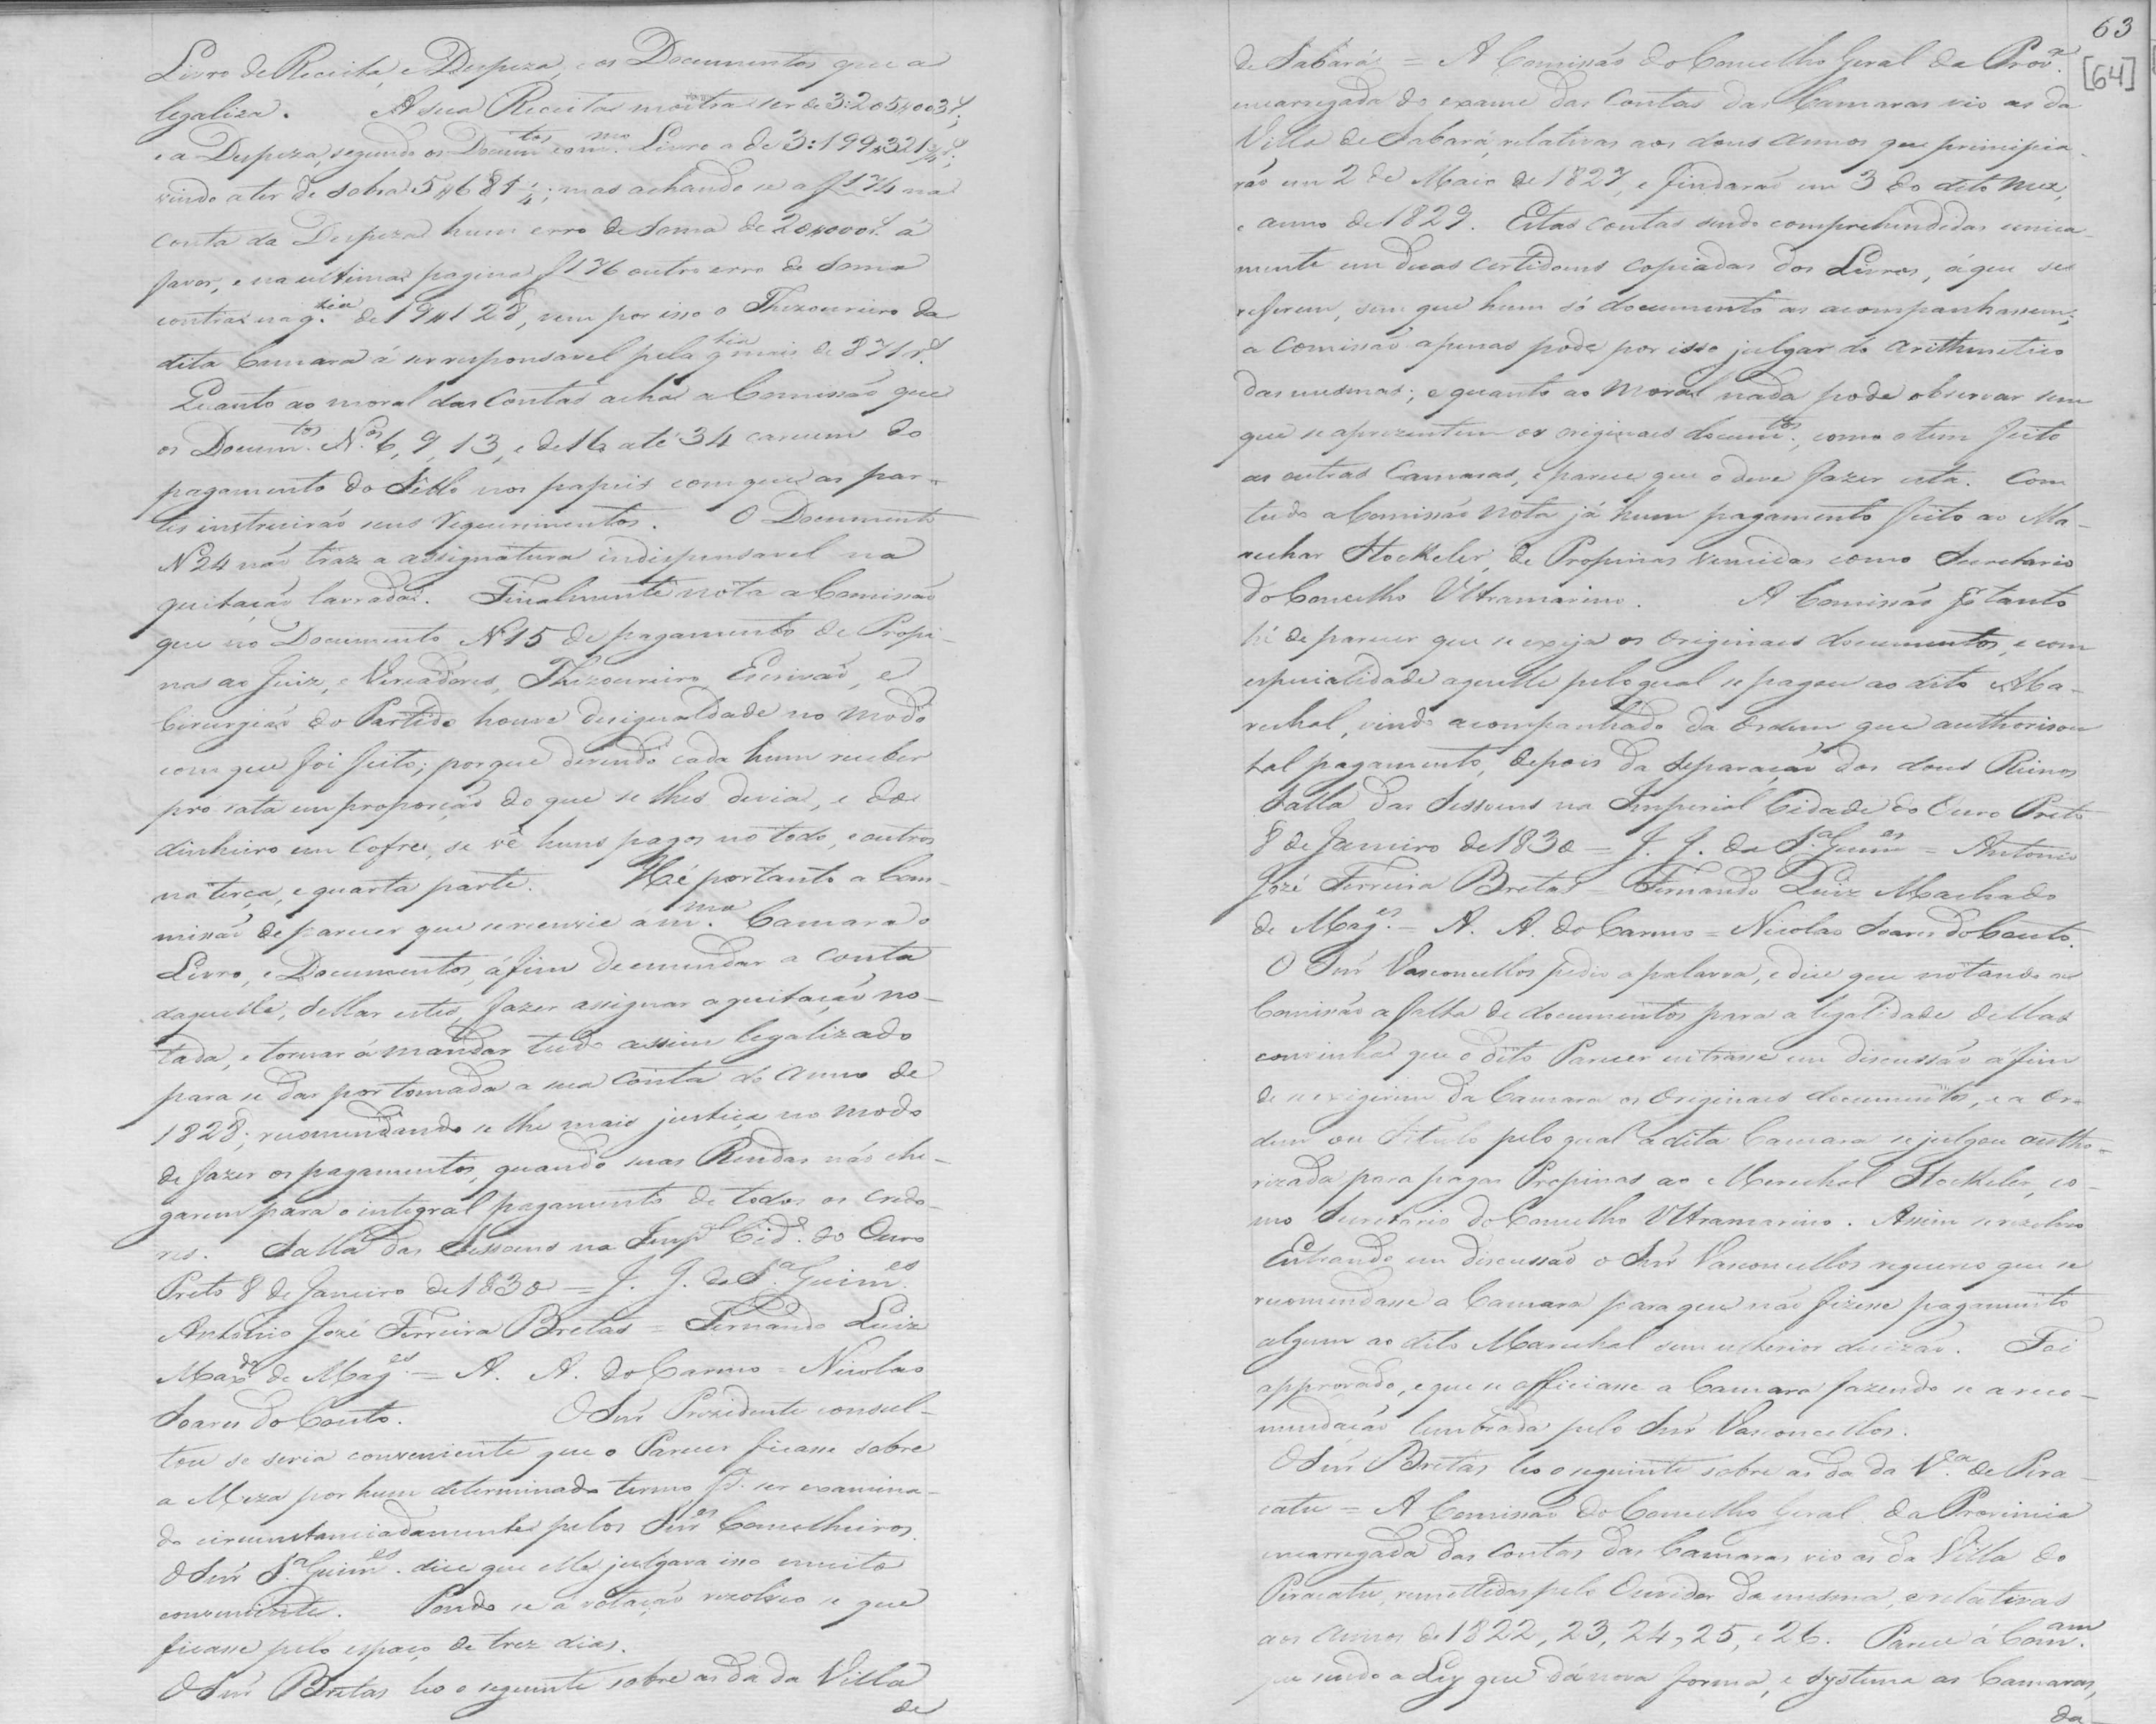 Livro de Receita, e Despeza, e os Documentos que a
legaliza. A sua Receita mostra ser de 3:205,,003 rs;
e a Despeza, segundo os Docum.tos com.mo Livro a de 3:199,,321 3/4 rs;
vindo a ter de sobra 5,,681 1/4; mas achando se a f 174 na
conta da Despeza hum erro de soma de 20,,000 r.s á
favor, e na ultima pagina f 176 outro erro de soma
contra na q.tia de 19,,128, vem por isso o Thezoureiro da
dita Camara á ser responsavel pela q.tia mais de 871 r.s
Quanto ao moral das Contas acha a Comissão que
os Docum.tos N.os 6, 9, 13, e de 16 até 34 carecem do
pagamento do Sello nos papeis com que as par-
tes instruirão seus requerimentos. O Documento
N 24 não traz a assignatura indispensavel na
quitação lavrada. Finalmente nota a Comissão
que no Documento N 15 de pagamento de Propi-
nas ao Juiz, e Vereadores, Thezoureiro, Escrivão, e
Cirurgião do Partido houve desigualdade no modo
com que foi feito; porque devendo cada hum receber
pro rata em proporção do que se lhes devia, e do
dinheiro em Cofre, se vê huns pagos no todo, e outros
na terça, e quarta parte. Hé portanto a Com-
missão de parecer que se reenvie á m.ma Camara o
Livro, e Documentos, áfim de emendar a conta
daquelle, Sellar estes, fazer assignar a quitação no-
tada, e tornar á mandar tudo assim legalizado
para se dar por tomada a sua Conta do anno de
1828; recomendando se lhe mais justiça no modo
de fazer os pagamentos, quando suas Rendas não che-
garem para o integral pagamento de todos os credo-
res. Salla das Sessoens na Imp.l Cid.e do Ouro
Preto 8 de Janeiro de 1830 = J. J. da S.a Guim.es
Antonio José Ferreira Bretas = Fernando Luiz
Max.do de Mag.es = A. A. do Carmo = Nicolao
Soares do Couto. O Snr Prezidente consul-
tou se seria conveniente que o Parecer ficasse sobre
a Meza por hum determinado termo p.a ser examina-
do circunstanciadamente pelos Snr.es Conselheiros.
O Snr S.a Guim.es dice que elle julgava isso muito
conveniente. Pondo se á votação rezolveo se que
ficasse pelo espaço de trez dias.
O Snr Bretas leo o seguinte sobre as da da Villa
de
63
[64]
de Sabará = A Comissão do Concelho Geral da Prov.a
encarregada do exame das Contas das Camaras vio as da
Villa de Sabará, relativas aos dous annos que principia-
rão em 2 de Maio de 1827, e findarão em 3 do dito mez,
e anno de 1829. Estas contas sendo comprehendidas unica-
mente em duas certidoens copiadas dos Livros, á que se
referem, sem que hum só documento as acompanhassem;
a Comissão apenas pode por isso julgar do arithmetico
das mesmas; e quanto ao moral nada pode observar sem
que se aprezentem os originaes docum.tos, como o tem feito
as outras Camaras, e parece que o deve fazer esta. Com
tudo a Comissão nota já hum pagamento feito ao Ma-
rechar Stockeler, de Propinas vencidas como Secretario
do Concelho Ultramarino. A Comissão p.r tanto
hé de parecer que se exija os originaes documentos, e com
especialidade aquelle pelo qual se pagou ao dito Ma-
rechal, vindo acompanhado da Ordem que authorisou
tal pagamento, depois da separação dos dous Reinos
Salla das Sessoens na Imperial Cidade do Ouro Preto
8 de Janeiro de 1830 = J. J. da S.a Guim.es = Antonio
Jozé Ferreira Bretas = Fernando Luiz Machado
de Mag.es = A. A. do Carmo = Nicolao Soares do Couto.
O Snr Vasconcellos pedio a palavra, e dice que notando a
Comissão a falta de documentos para a legalidade dellas
convinha que o dito Parecer entrasse em discussão a fim
de se exigirem da Camara os Originaes documentos, e a Or-
dem ou Titulo pelo qual a dita Camara se julgou autho-
rizada para pagar Propinas ao Marechal Stockeler, co-
mo Secretario do Concelho Ultramarino. Assim se rezolveo
Entrando em discussão o Snr Vasconcellos requereo que se
recomendasse a Camara para que não fizesse pagamento
algum ao dito Marechal sem ulterior decizão. Foi
approvado, e que se officiasse a Camara fazendo se a reco-
mendação lembrada pelo Snr Vasconcellos.
O Snr Bretas leo o seguinte sobre as da da V.a de Pira-
catu = A Comissão do Concelho Geral da Provincia
encarregada das contas das Camaras vio as da Villa do
Piracatu, remettidas pelo Ouvidor da mesma, e relativas
aos annos de 1822, 23, 24, 25, e 26. Parece á Com.am
que sendo a Ley que dá nova forma, e systema as Camaras,
da